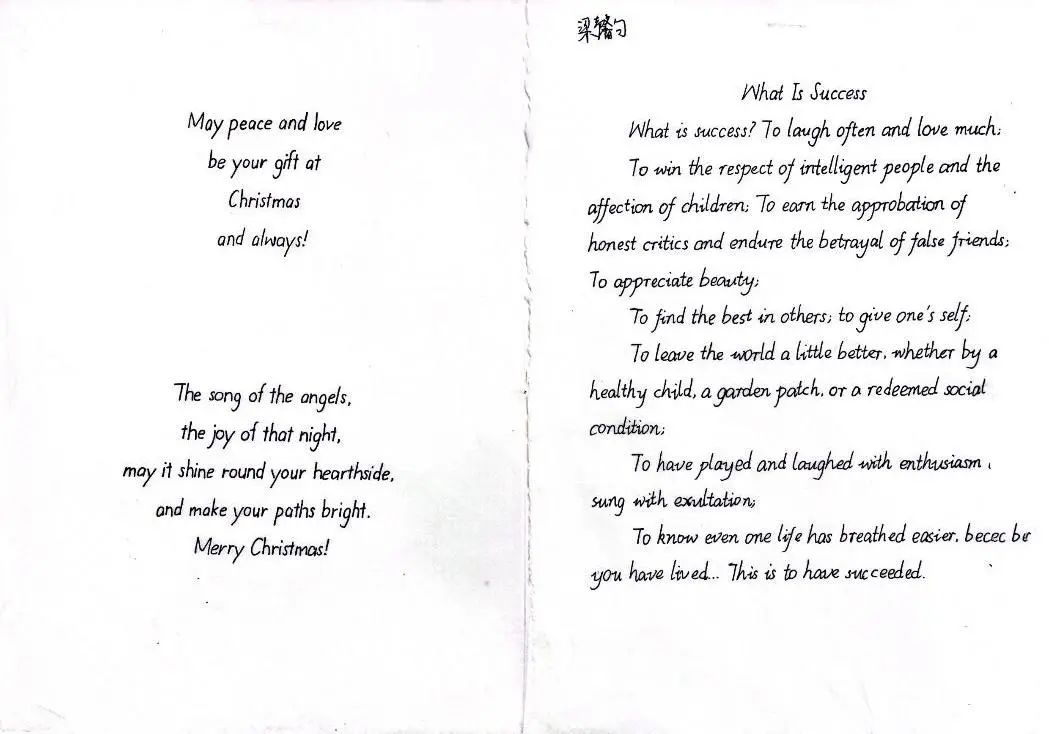 May peace and love
be your gift at
Christmas
and always!
The song of the angels,
the joy of that night,
may it shine round your hearthside,
and make your paths bright.
Merry Christmas!
梁馨匀
What Is Success
What is success? To laugh often and love much;
To win the respect of intelligent people and the
affection of children; To earn the approbation of
honest critics and endure the betrayal of false friends;
To appreciate beauty;
To find the best in others; to give one's self;
To leave the world a little better, whether by a
healthy child, a garden patch, or a redeemed social
condition;
To have played and laughed with enthusiasm,
sung with exultation;
To know even one life has breathed easier, becec be
you have lived... This is to have succeeded.